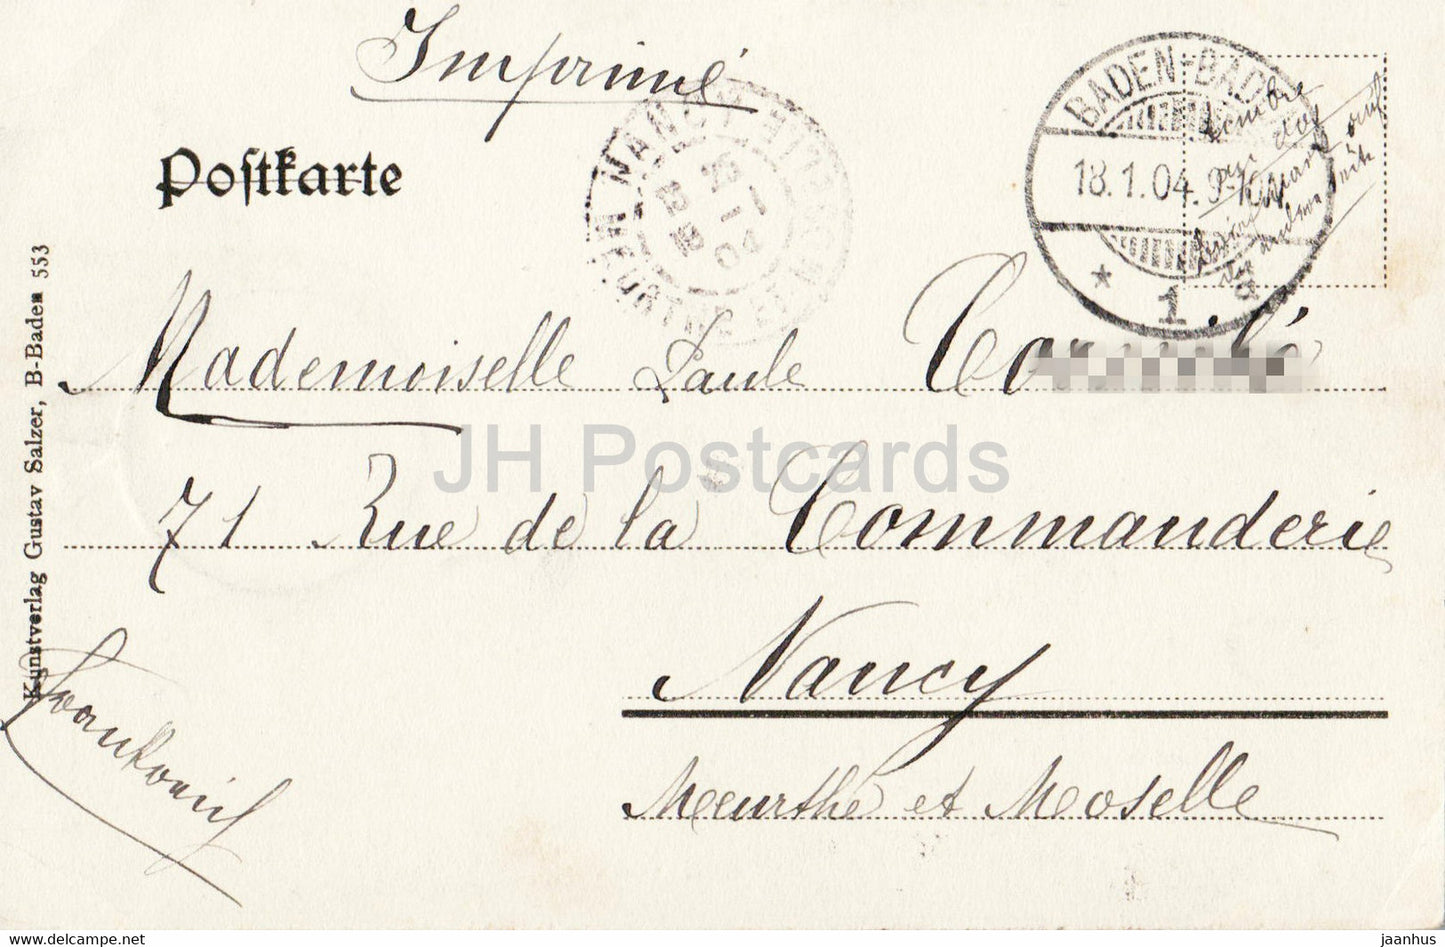 Imprimé
Postkarte
NANCY
MEURTHE ET MOSELLE
BADEN-BAD
18.1.04. 9-10
* 1
Timbre
Mademoiselle Paule
71 Rue de la Commanderie
Nancy
Meurthe et Moselle
Kunstverlag Gustav Salzer, B-Baden 553
JH Postcards
www.delcampe.net
jaanhus